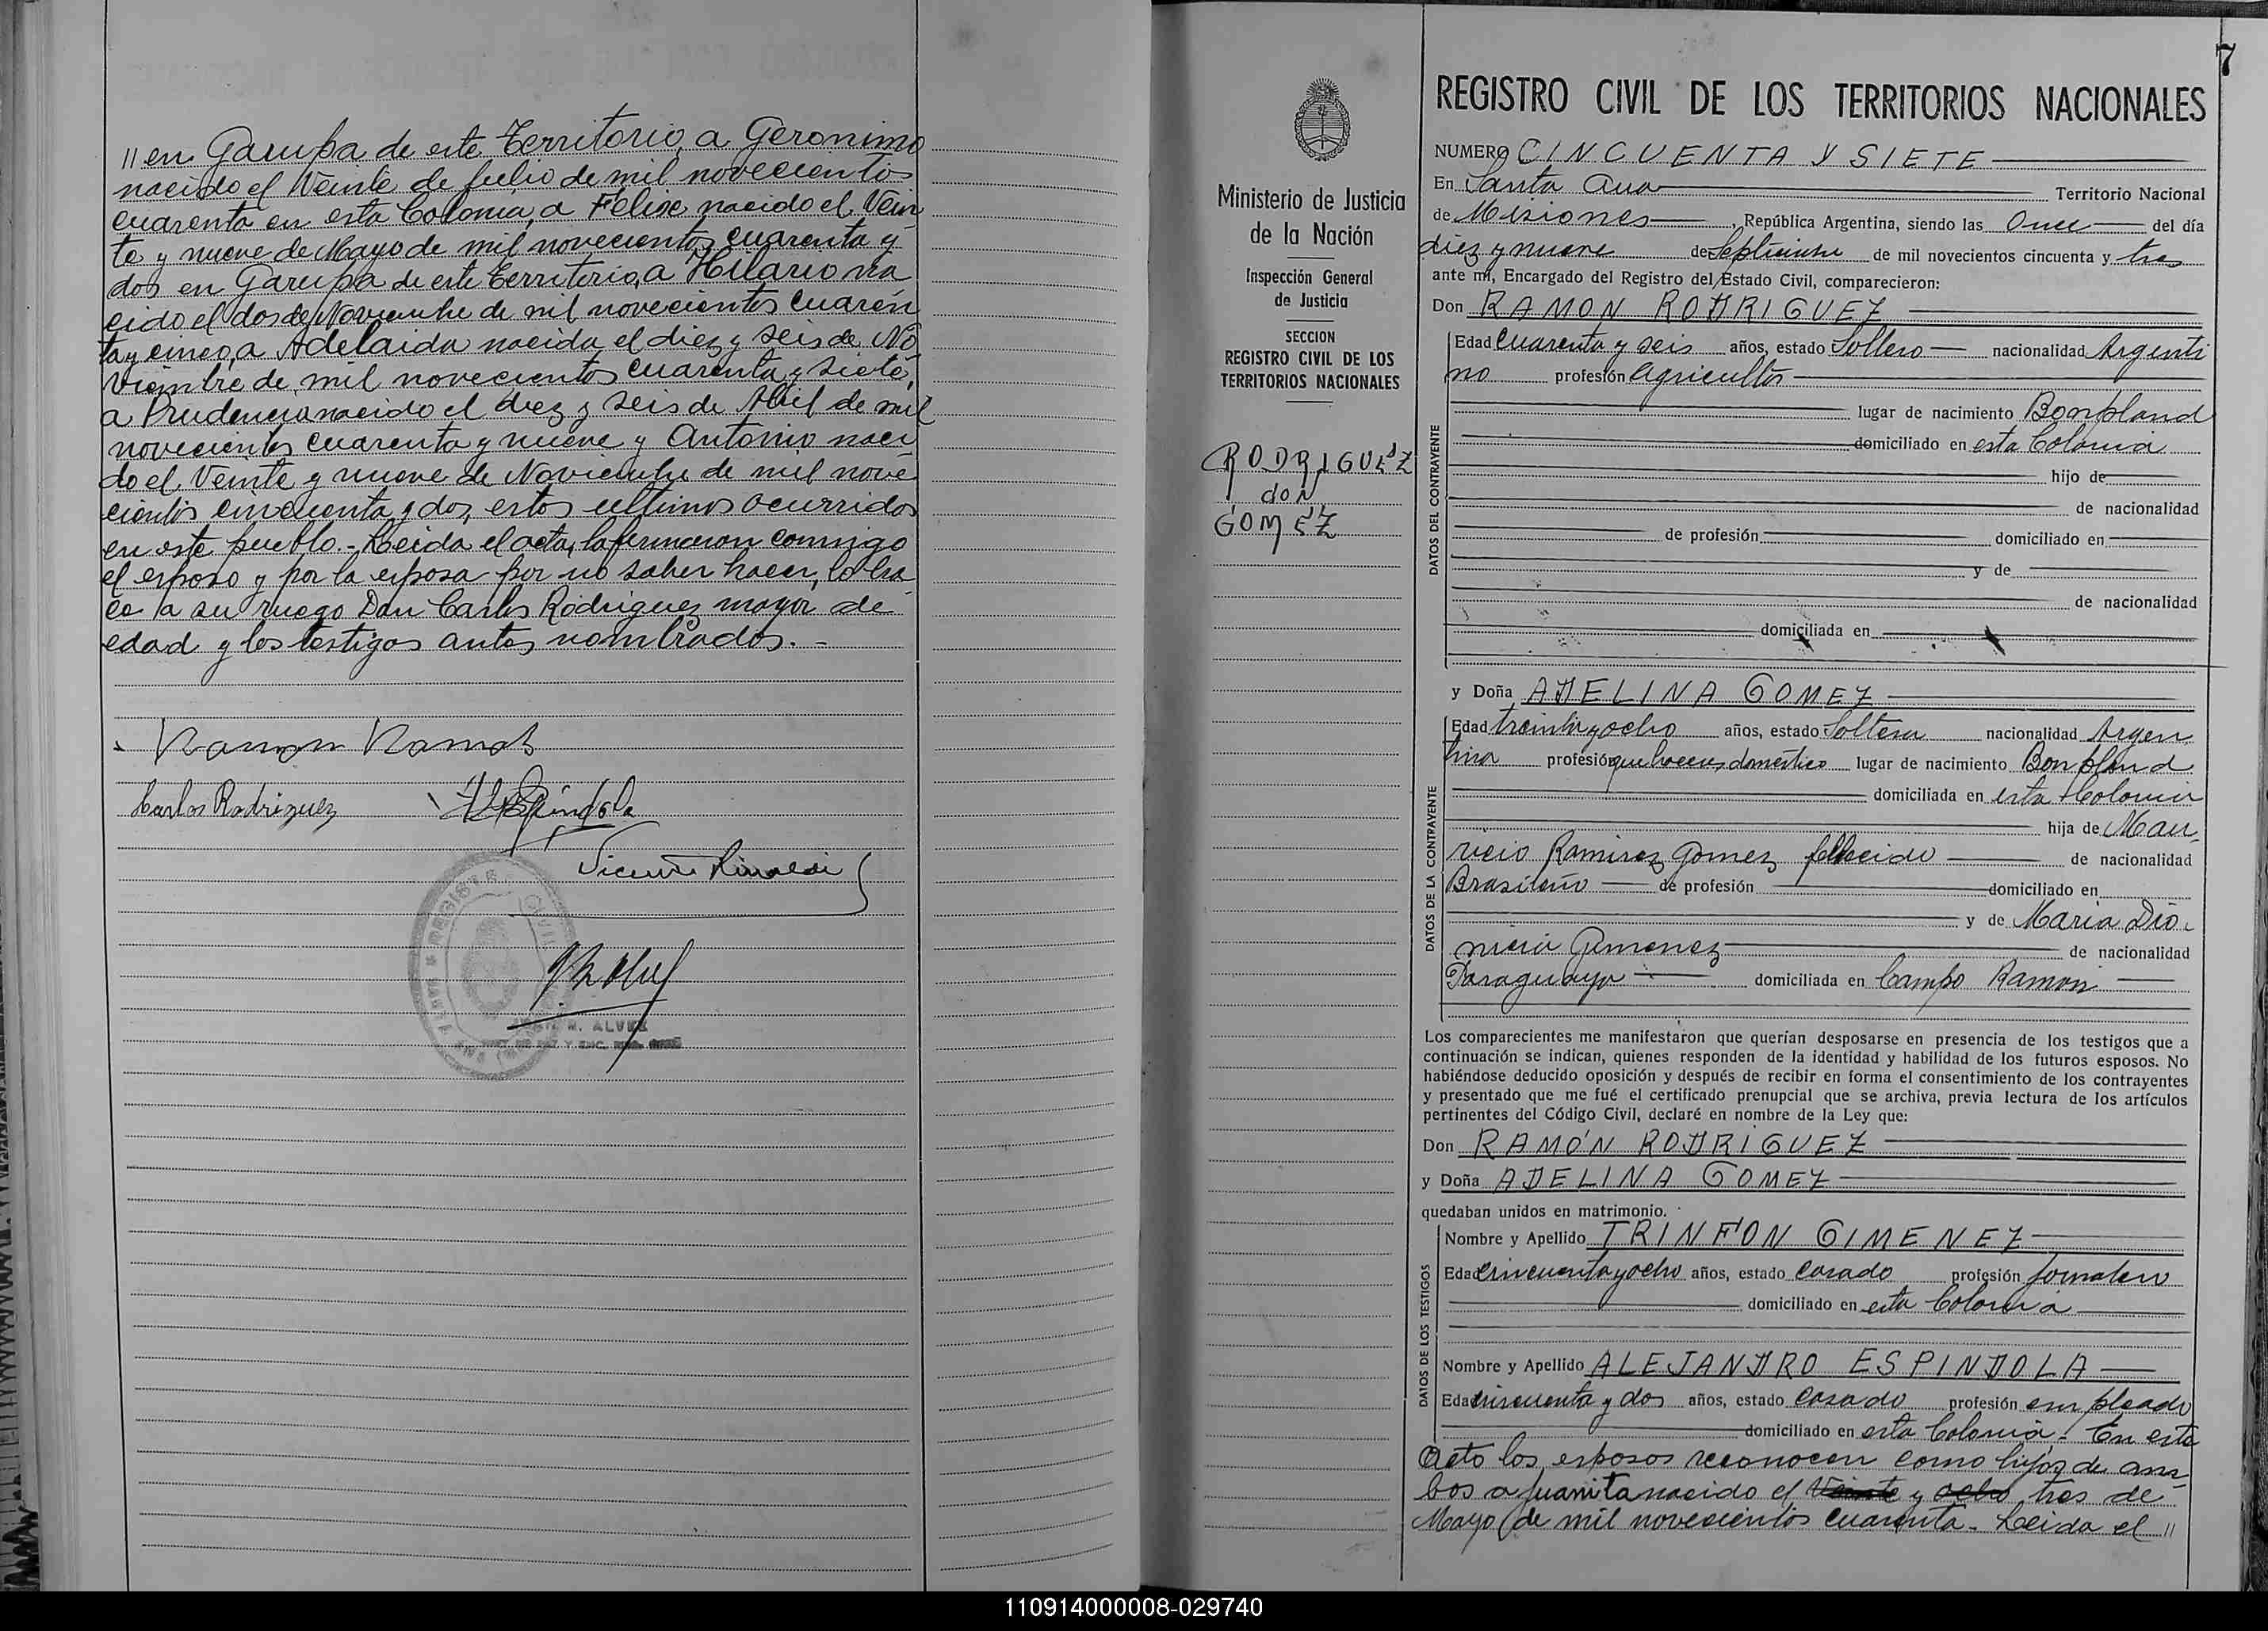 // en Garupa de este Territorio, a Geronimo
nacido el Veinte de Julio de mil novecientos
cuarenta en esta Colonia, a Felixe nacido el Vein
te y nueve de Mayo de mil novecientos cuarenta y
dos en Garupa de este Territorio, a Hilario na
cido el dos de Noviembre de mil novecientos cuaren
ta y cinco, a Adelaida nacida el diez y seis de No
viembre de mil novecientos cuarenta y siete,
a Prudencia nacido el diez y seis de Abril de mil
novecientos cuarenta y nueve y Antonio naci
do el Veinte y nueve de Noviembre de mil nove
cientos cincuenta y dos, estos ultimos ocurridos
en este pueblo.- Leida el acta, la firmaron conmigo
el esposo y por la esposa por no saber hacer, lo ha
ce a su ruego Don Carlos Rodriguez mayor de
edad y los testigos antes nombrados.-
Ramon Ramos
Carlos Rodriguez
A Espindola
Vicente Rinaldi
N. ALVEZ
7
REGISTRO CIVIL DE LOS TERRITORIOS NACIONALES
Ministerio de Justicia
de la Nación
Inspección General
de Justicia
SECCION
REGISTRO CIVIL DE LOS
TERRITORIOS NACIONALES
RODRIGUEZ
con
GOMEZ
NUMERO CINCUENTA Y SIETE
En Santa Ana Territorio Nacional
de Misiones, República Argentina, siendo las Once del día
diez y nueve de Septiembre de mil novecientos cincuenta y tres
ante mí, Encargado del Registro del Estado Civil, comparecieron:
Don RAMON RODRIGUEZ
DATOS DEL CONTRAYENTE
Edad Cuarenta y seis años, estado Soltero nacionalidad Argenti
no profesión Agricultor
lugar de nacimiento Bonpland
domiciliado en esta Colonia
hijo de
de nacionalidad
de profesión domiciliado en
y de
de nacionalidad
domiciliada en
y Doña ADELINA GOMEZ
DATOS DE LA CONTRAYENTE
Edad treinta y ocho años, estado Soltera nacionalidad Argen
tina profesión quehaceres domestico lugar de nacimiento Bonpland
domiciliada en esta Colonia
hija de Mau
ricio Ramirez Gomez fallecido de nacionalidad
Brasileño de profesión domiciliado en
y de Maria Dio
nicia Gimenez de nacionalidad
Paraguaya domiciliada en Campo Ramon
Los comparecientes me manifestaron que querían desposarse en presencia de los testigos que a
continuación se indican, quienes responden de la identidad y habilidad de los futuros esposos. No
habiéndose deducido oposición y después de recibir en forma el consentimiento de los contrayentes
y presentado que me fué el certificado prenupcial que se archiva, previa lectura de los artículos
pertinentes del Código Civil, declaré en nombre de la Ley que:
Don RAMÓN RODRIGUEZ
y Doña ADELINA GOMEZ
quedaban unidos en matrimonio.
DATOS DE LOS TESTIGOS
Nombre y Apellido TRINFON GIMENEZ
Edad cincuenta y ocho años, estado casado profesión Jornalero
domiciliado en esta Colonia
Nombre y Apellido ALEJANDRO ESPINDOLA
Edad cincuenta y dos años, estado casado profesión empleado
domiciliado en esta Colonia.- En este
Acto los esposos reconocen como hijos de am
bos a Juanita nacido el Veinte y ocho tres de
Mayo de mil novecientos cuarenta.- Leida el //
110914000008-029740